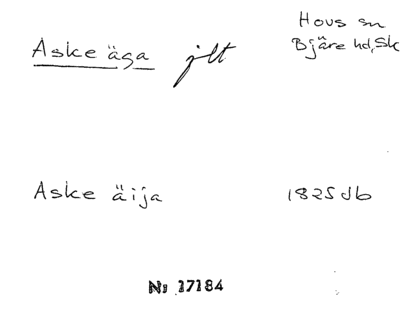 Hovs sn
Aske äga jlt Bjäre hd, Sk
Aske äija 1825 Jb
No 17184